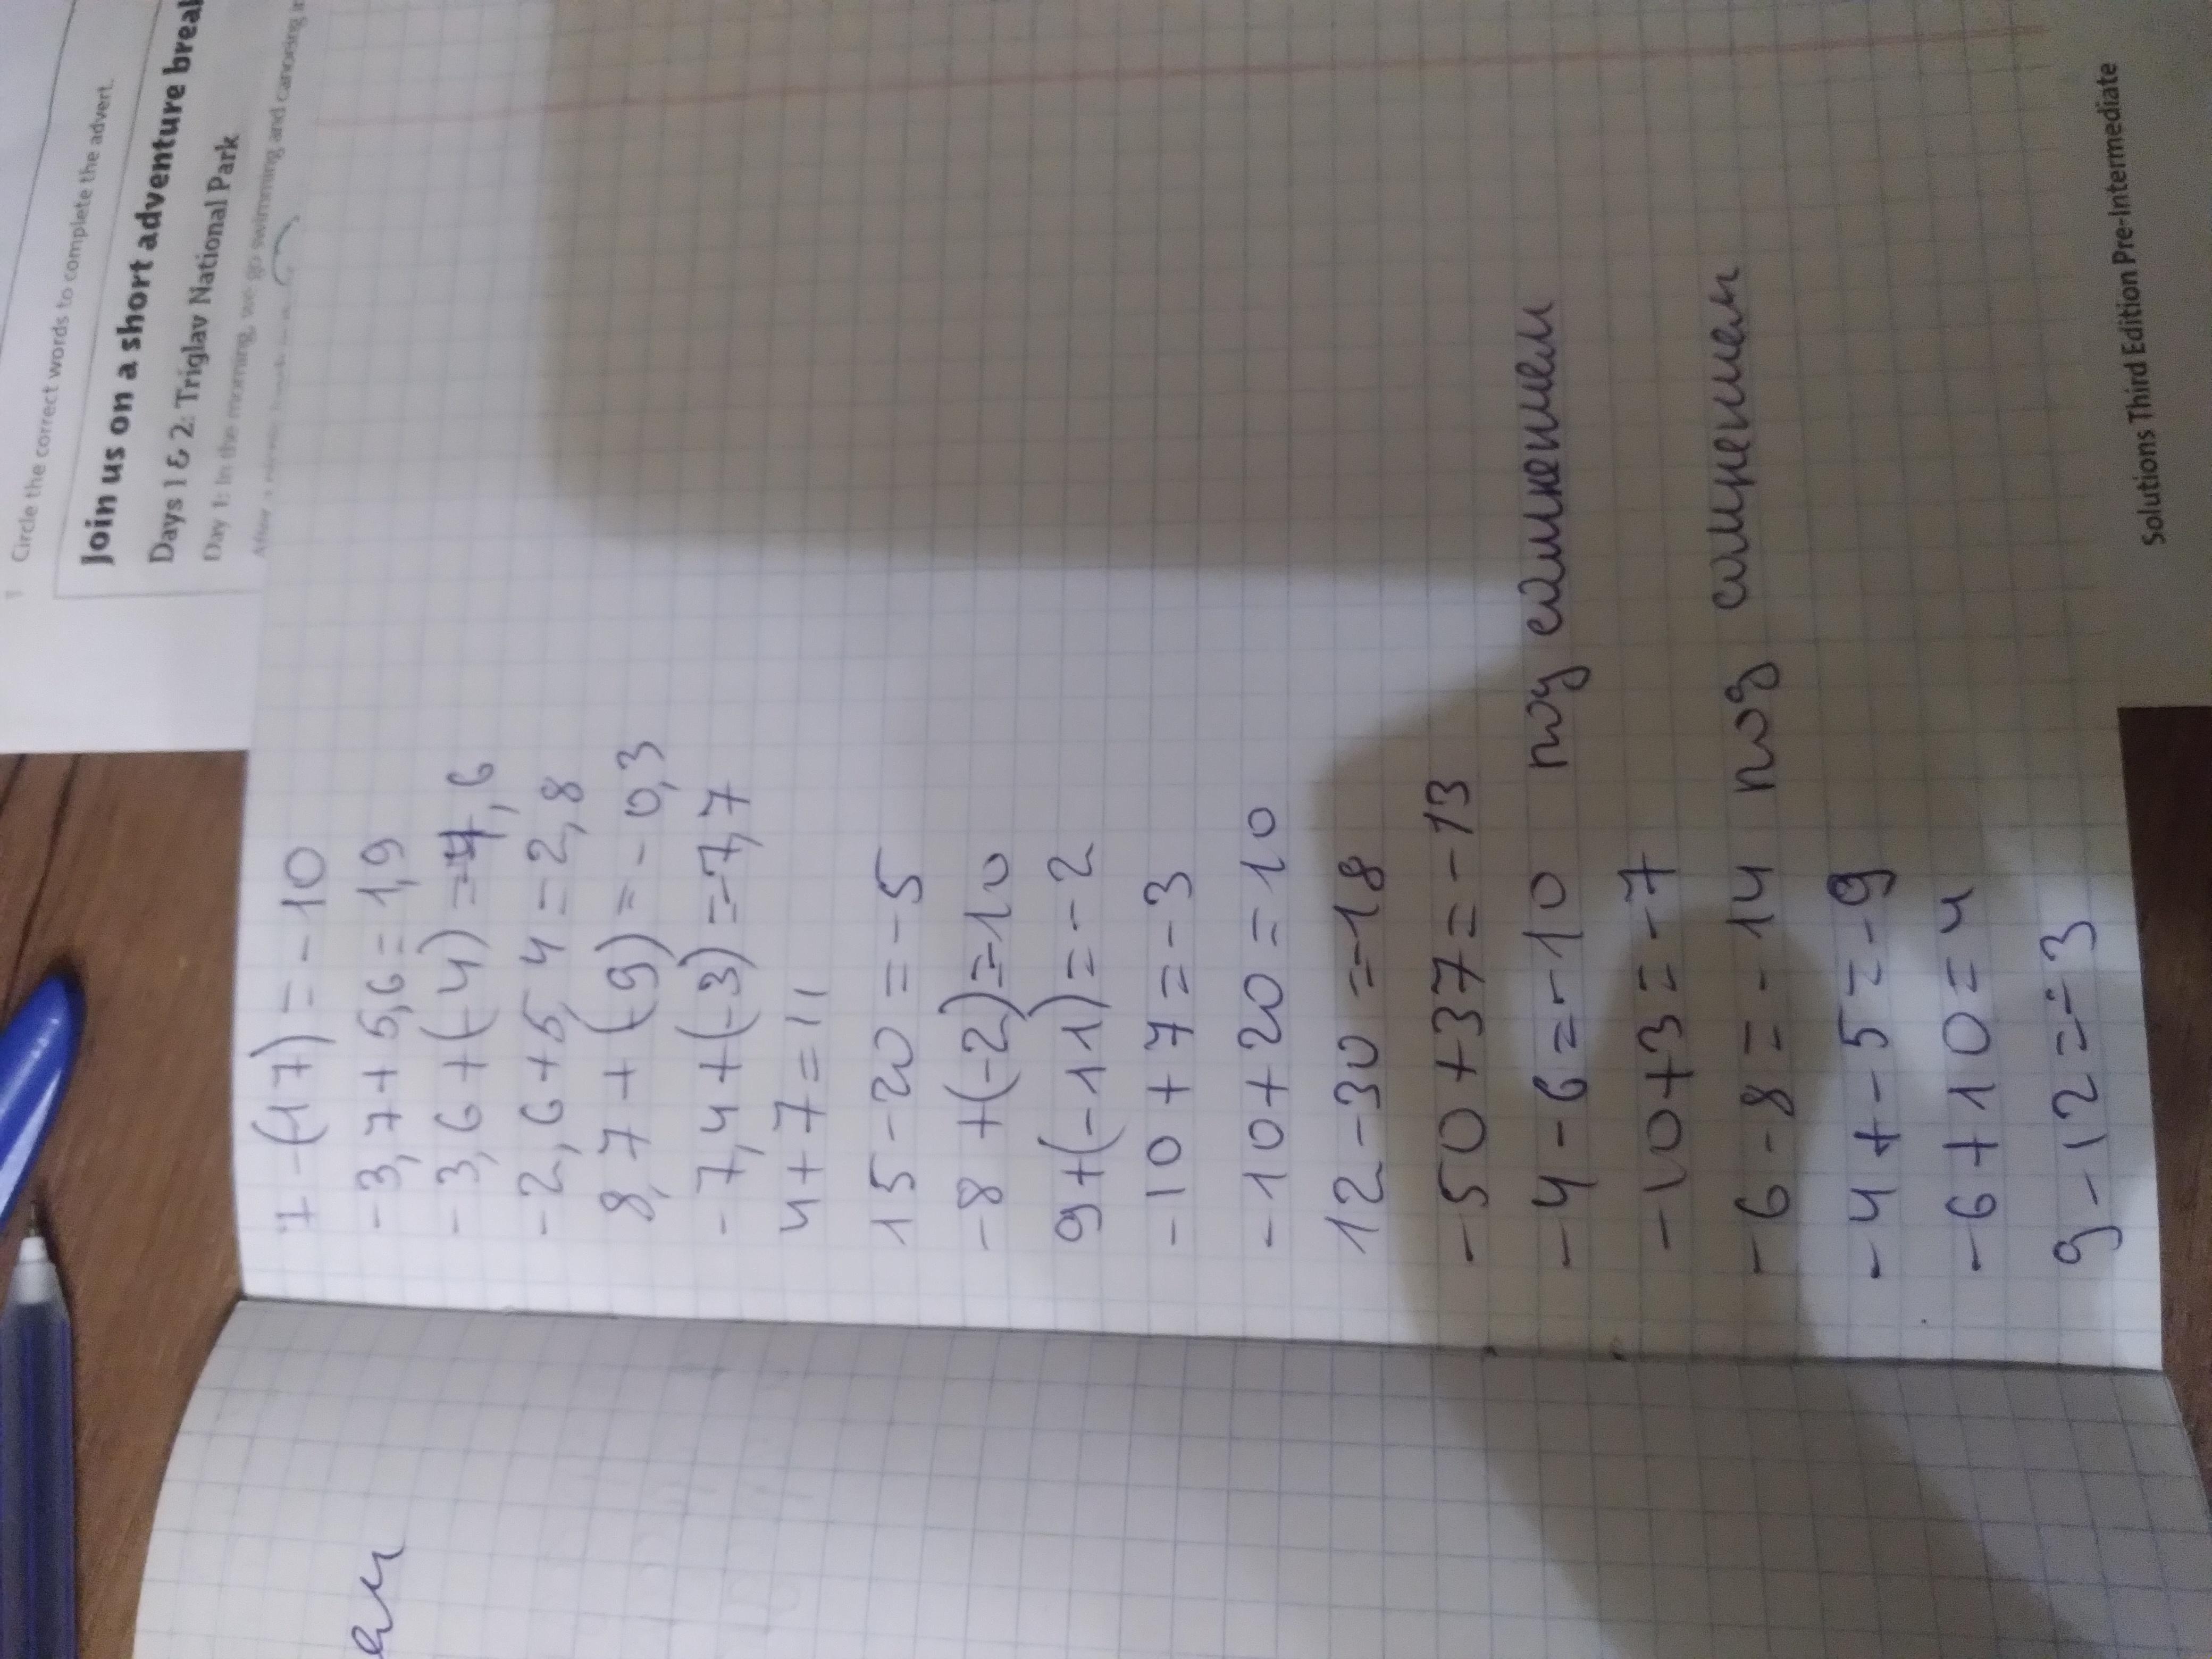 1 Circle the correct words to complete the advert.
Join us on a short adventure break
Days 1 & 2: Triglav National Park
Day 1: In the morning, we go swimming and canoeing
After a
7-(17)=-10
-3,7+5,6=1,9
-3,6+(-4)=-7,6
-2,6+5,4=2,8
8,7+(-9)=-0,3
-7,4+(-3)=-7,7
4+7=11
15-20=-5
-8+(-2)=-10
9+(-11)=-2
-10+7=-3
-10+20=10
12-30=-18
-50+37=-13
-4-6=-10 под сомнением
-10+3=-7
-6-8=-14 под сомнением
-4+-5=-9
-6+10=4
9-12=-3
Solutions Third Edition Pre-Intermediate
ем